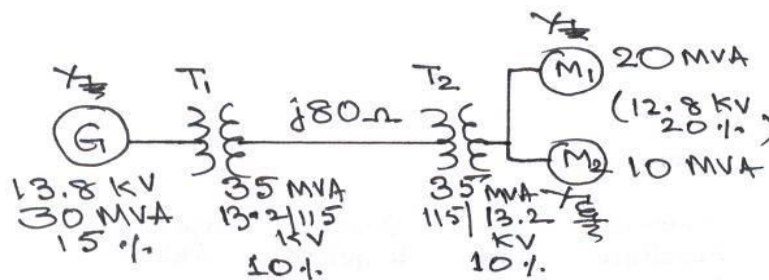 T1
T2
j80Ω
G
M1
M2
20 MVA
(12.8 KV
20%)
10 MVA
13.8 KV
30 MVA
15%
35 MVA
13.2/115
KV
10%
35 MVA
115/13.2
KV
10%